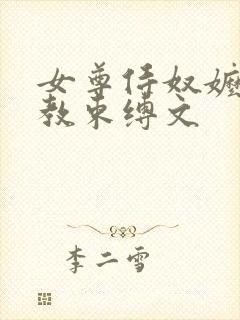 女尊侍奴嬷
教束缚文
李二雪